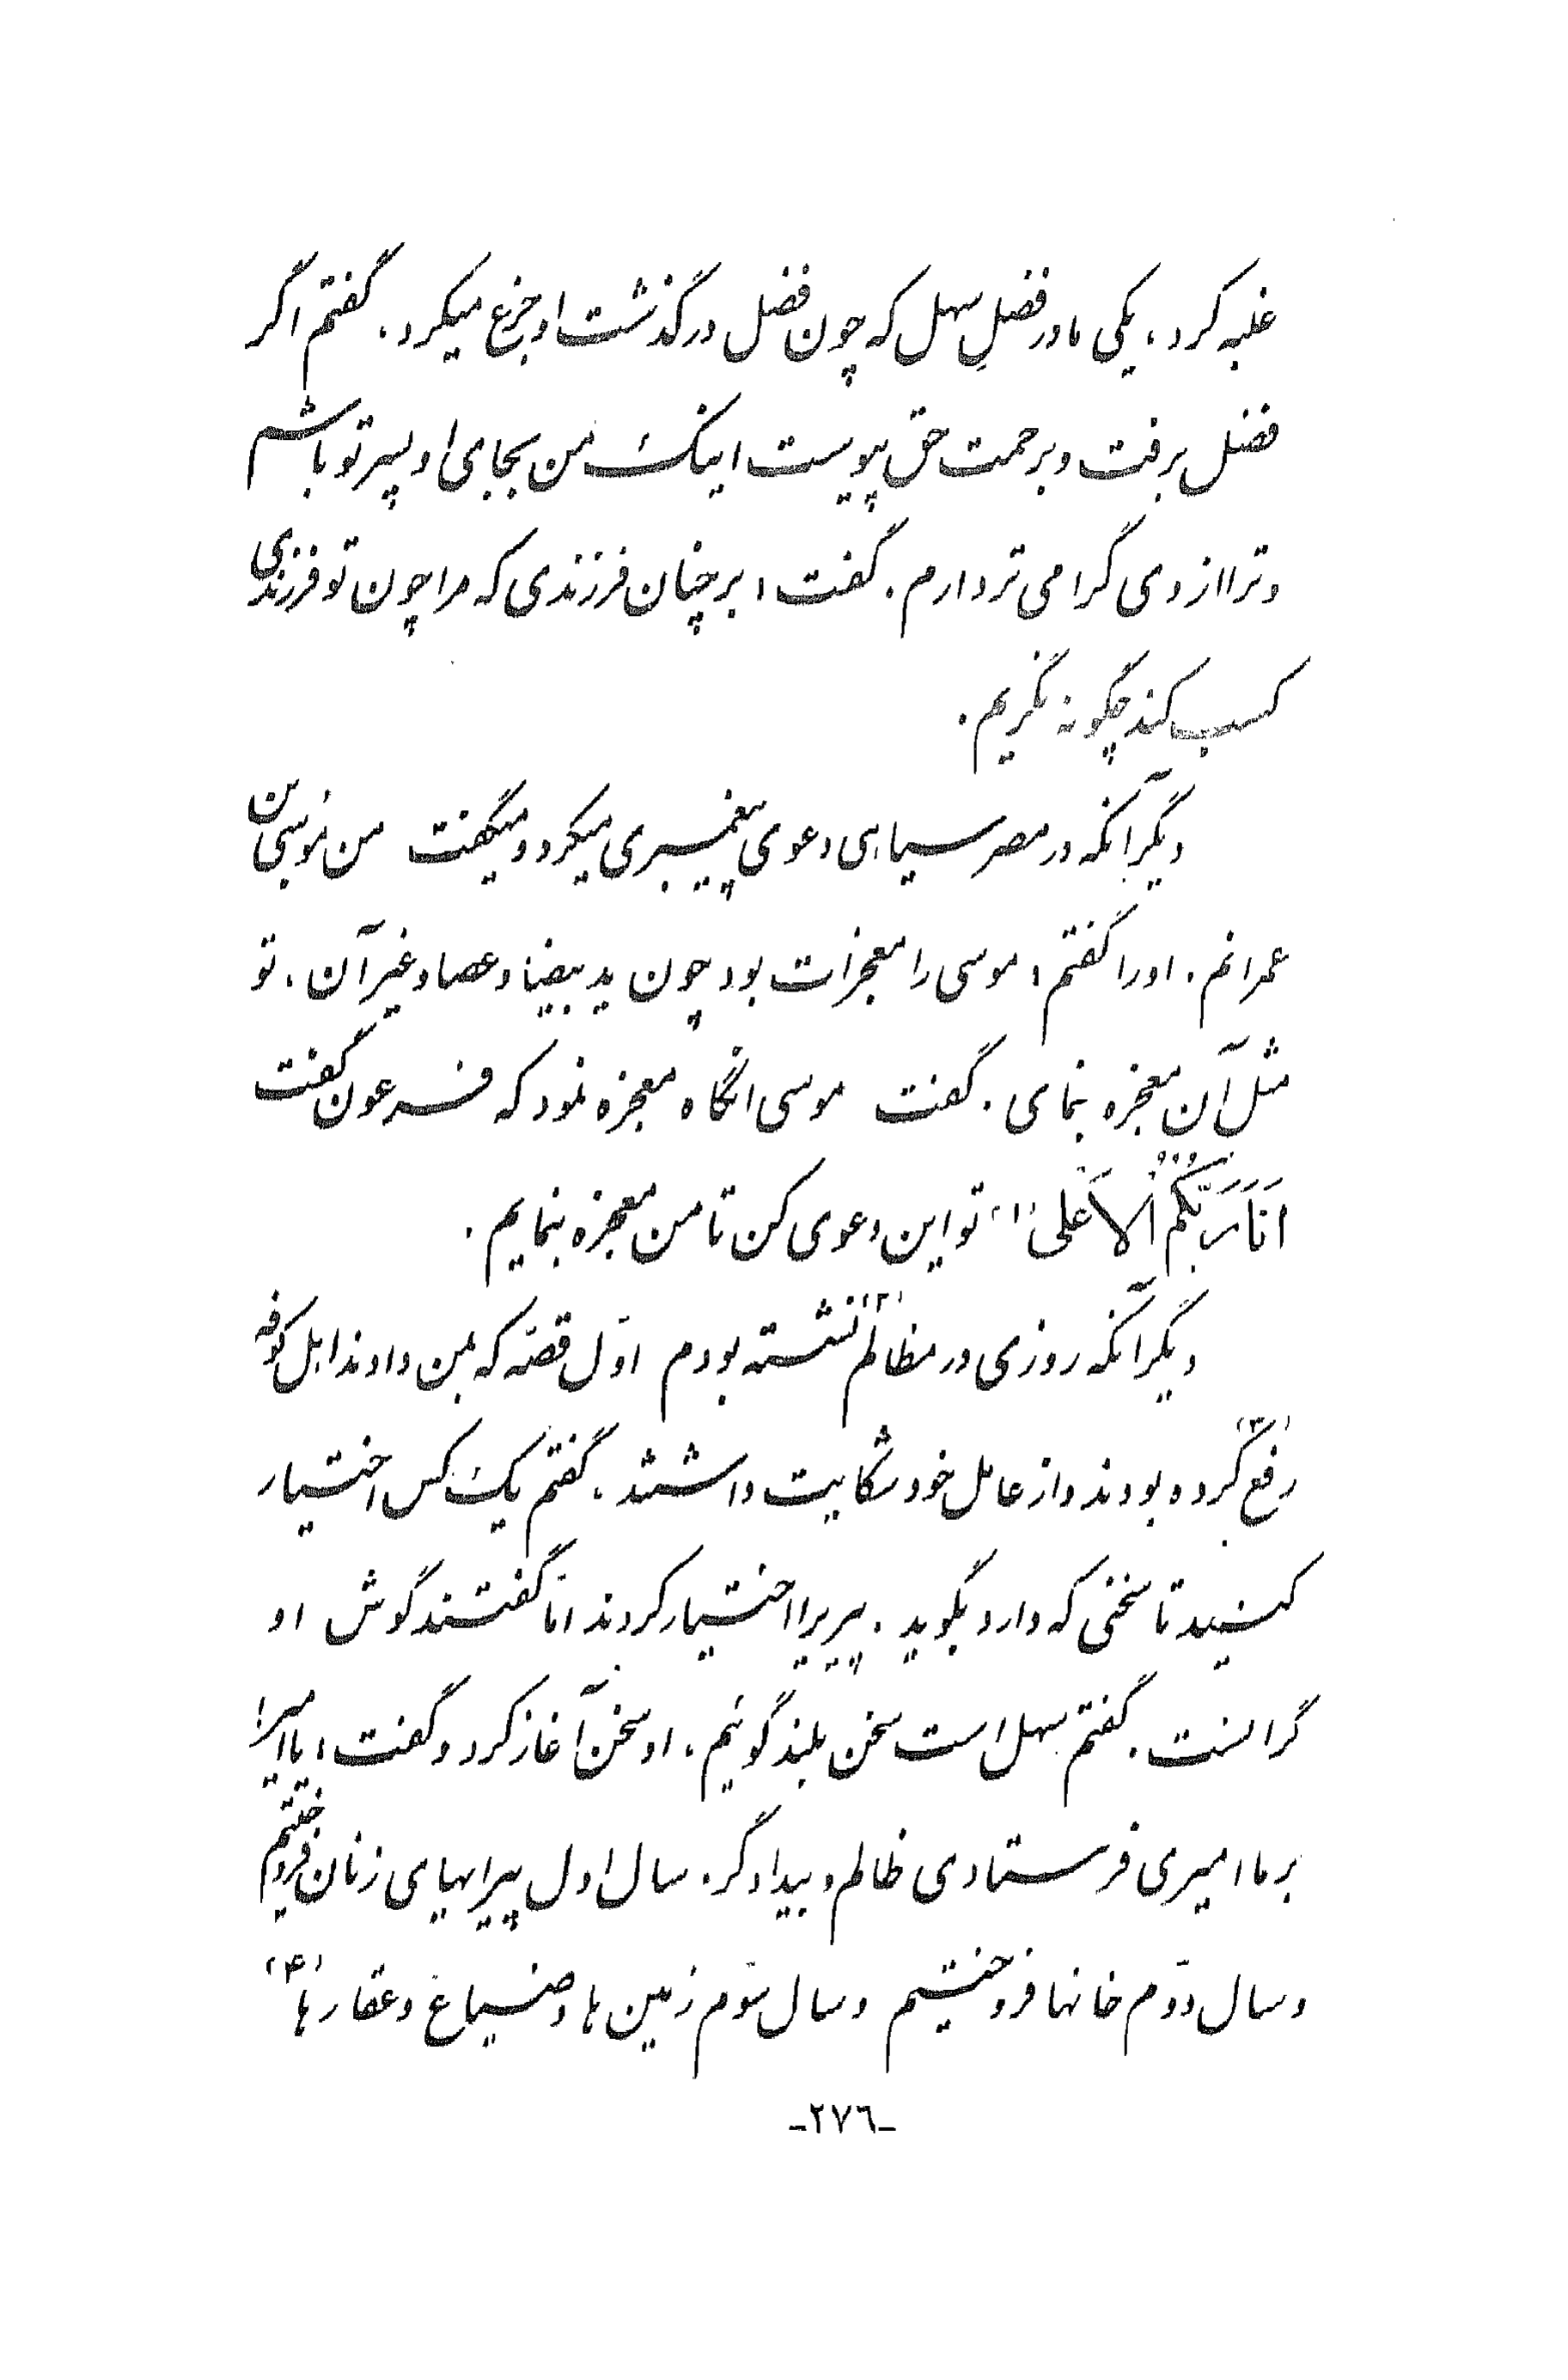 غلبه کرد، یکی مادر فضلِ سهل که چون فضل درگذشت او جزع میکرد. گفتم اگر
فضل برفت و برحمت حق پیوست اینک من بجای او پسر تو باشم
و ترا از وی گرامی تر دارم. گفت: بر چنان فرزندی که مرا چون تو فرزندی
کسب کند چگونه نگریم.
دیگر آنکه در مصر سیاهی دعوی پیغمبری میکرد و میگفت من موسی بن
عمرانم. او را گفتم: موسی را معجزات بود چون ید بیضا و عصا و غیر آن، تو
مثل آن معجزه بنمای. گفت موسی انگاه معجزه نمود که فرعون گفت
اَنَا رَبُّکُمُ الاَعْلی (۱) تو این دعوی کن تا من معجزه بنمایم.
دیگر آنکه روزی در مظالم (۲) نشسته بودم اوّل قصّه که بمن دادند اهل کوفه
رفع (۳) کرده بودند و از عامل خود شکایت داشتند، گفتم یک کس اختیار
کنید تا سخنی که دارد بگوید. پیریرا اختیار کردند امّا گفتند گوش او
گرانست. گفتم سهل است سخن بلند گوئیم. او سخن آغاز کرد و گفت: یا امیر!
بر ما امیری فرستادی ظالم و بیدادگر. سال اول پیرایهای زنان فروختیم
و سال دوّم خانها فروختیم و سال سوّم زمین ها و ضیاع و عقارها (۴)
-۲۷٦-